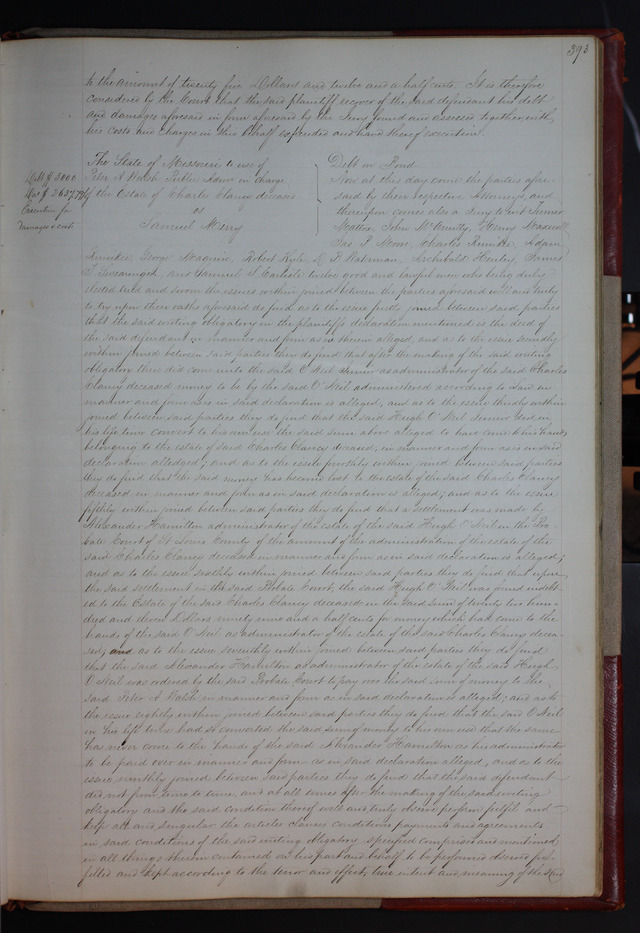 393
to the amount of twenty five Dollars and twelve and a half cents. It is therefore
considered by the Court that the said plaintiff recover of the said defendant his debt
and damages aforesaid in form aforesaid by the Jury found and assessed together with
his costs and charges in this behalf expended and have thereof execution.
The State of Missouri to use of
Peter A Walsh Public Admr in charge
of the Estate of Charles Clancy deceased
vs
Samuel Merry
Debt $ 5000
Execution for
Damages & costs
Debt on Bond
Now at this day come the parties afore
said by their respective Attorneys, and
thereupon comes also a Jury to wit
John McAnulty, Henry
Jas P Moore, Charles Adam
George Maguire, Robert D. F. Waterman, Archibald James
T. Swearingen and Samuel S Carlisle twelve good and lawful men who being duly
elected tried and sworn the issues within joined between the parties aforesaid well and truly
to try upon their oaths aforesaid do find as to the issue firstly joined between said parties
that the said writing obligatory in the plaintiffs declaration mentioned is the deed of
the said defendant in manner and form as is therein alleged, and as to the issue secondly
within joined between said parties they do find that after the making of the said writing
obligatory there did come unto the said O'Neil as administrator of the said Charles
Clancy deceased money to be by the said O'Neil administered according to law in
manner and form as is in said declaration is alleged, and as to the issue thirdly within
joined between said parties they do find that the said Hugh O'Neil Junior did in
his life time convert to his own use the said sum above alleged to have come to his hands
belonging to the estate of said Charles Clancy deceased, in manner and form as is in said
declaration alledged; and as to the issue fourthly within joined between said parties
they do find that the said money has become lost to the estate of the said Charles Clancy
deceased in manner and form as in said declaration is alleged; and as to the issue
fifthly within joined between said parties they do find that a settlement was made by
Alexander Hamilton administrator of the estate of the said Hugh O'Neil in the Pro
bate Court of St Louis County of the amount of the administration of the estate of the
said Charles Clancy deceased in manner and form as in said declaration is alleged;
and as to the issue sixthly within joined between said parties they do find that upon
the said settlement in the said Probate Court, the said Hugh O'Neil was found indebt
ed to the Estate of the said Charles Clancy deceased in the said sum of twenty two hun
dred and eleven Dollars ninety nine and a half cents for money which had come to the
hands of the said O'Neil as administrator of the estate of the said Charles Clancy decea
sed; and as to the issue seventhly within joined between said parties they do find
that the said Alexander Hamilton as administrator of the estate of the said Hugh
O'Neil was ordered by the said Probate Court to pay over the said sum of money to the
said Peter A Walsh in manner and form as in said declaration is alleged; and as to
the issue eightly within joined between said parties they do find that the said O'Neil
in his life time had so converted the said sum of money to his own use that the same
has never come to the hands of the said Alexander Hamilton as his administrator
to be paid over in manner and form as in said declaration alleged, and as to the
issue ninthly joined between said parties they do find that the said defendant
did not from time to time, and at all times after the making of the said writing
obligatory and the said condition thereof well and truly observe perform fulfil and
keep all and singular the articles clauses conditions payments and agreements
in said conditions of the said writing obligatory specified comprised and mentioned
in all things therein contained on his part and behalf to be performed observed ful
filled and kept according to the tenor and effect, true intent and meaning of the said